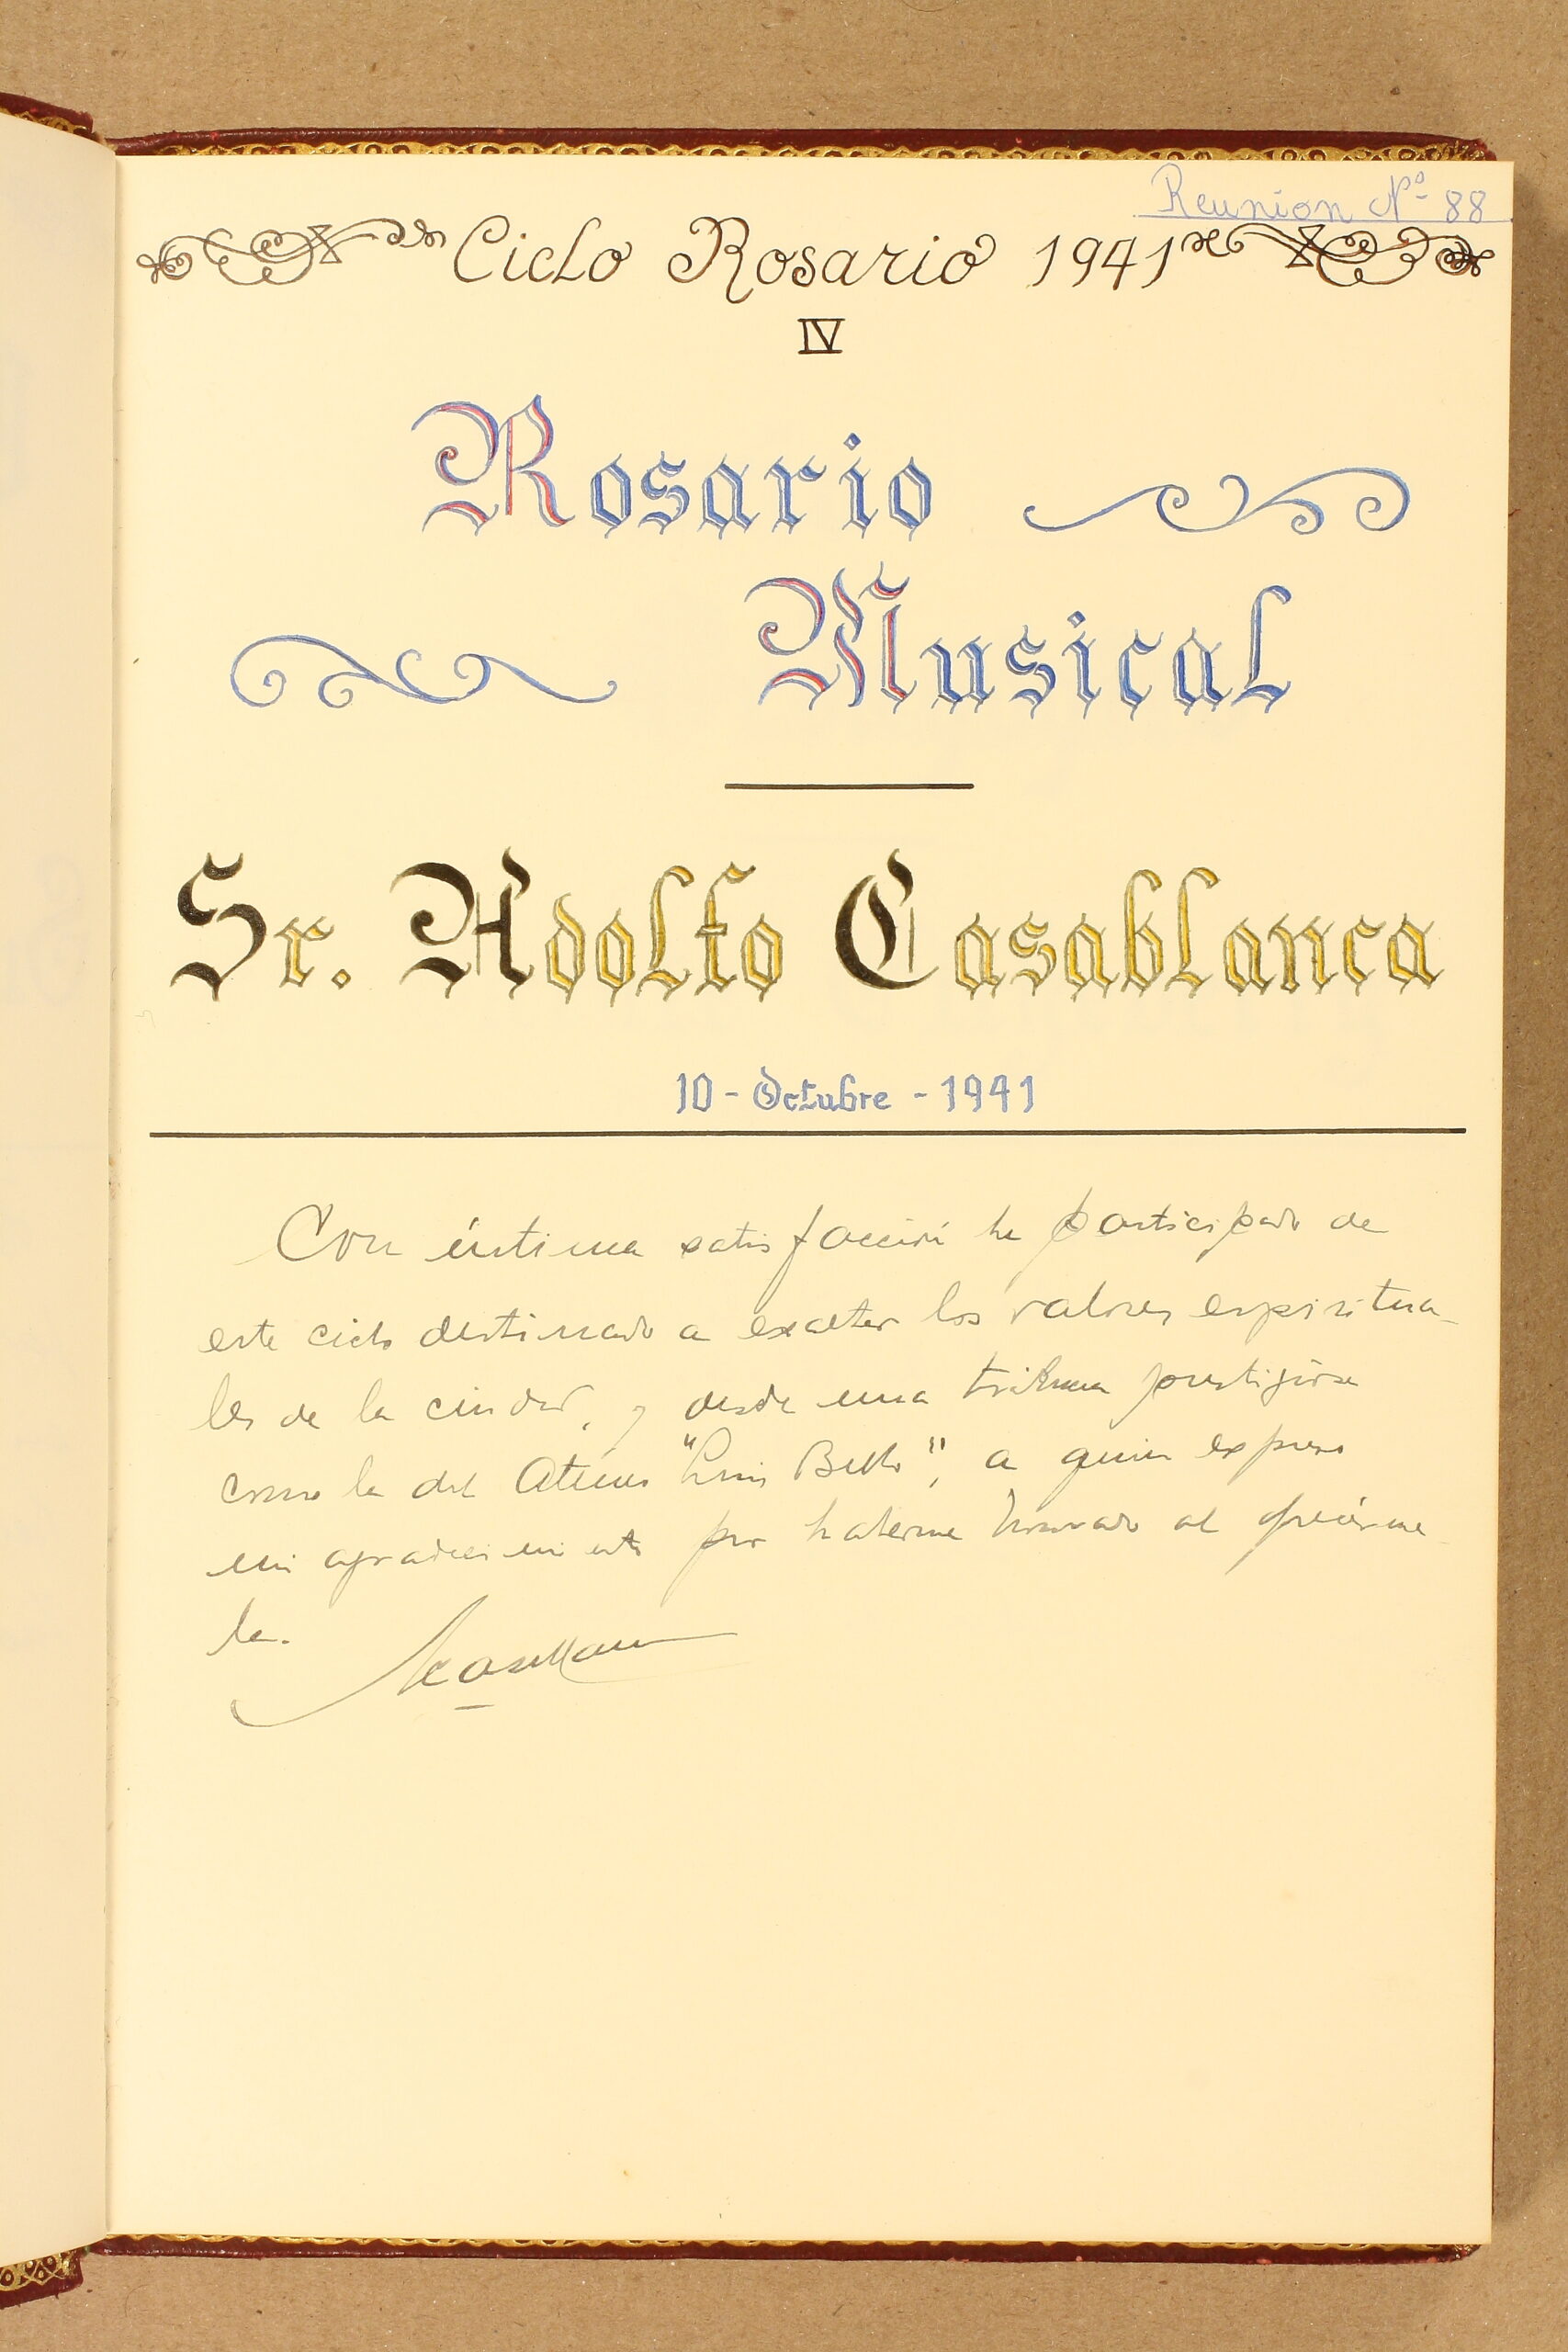 Reunion Nº 88
Ciclo Rosario 1941
IV
Rosario
Musical
Sr. Adolfo Casablanca
10 - Octubre - 1941
Con íntima satisfacción he participado de
este ciclo destinado a exaltar los valores espiritua-
les de la ciudad, y desde una tribuna prestigiosa
como la del Ateneo "Luis Bello", a quien expreso
mi agradecimiento por haberme honrado al ofrecérme-
la.